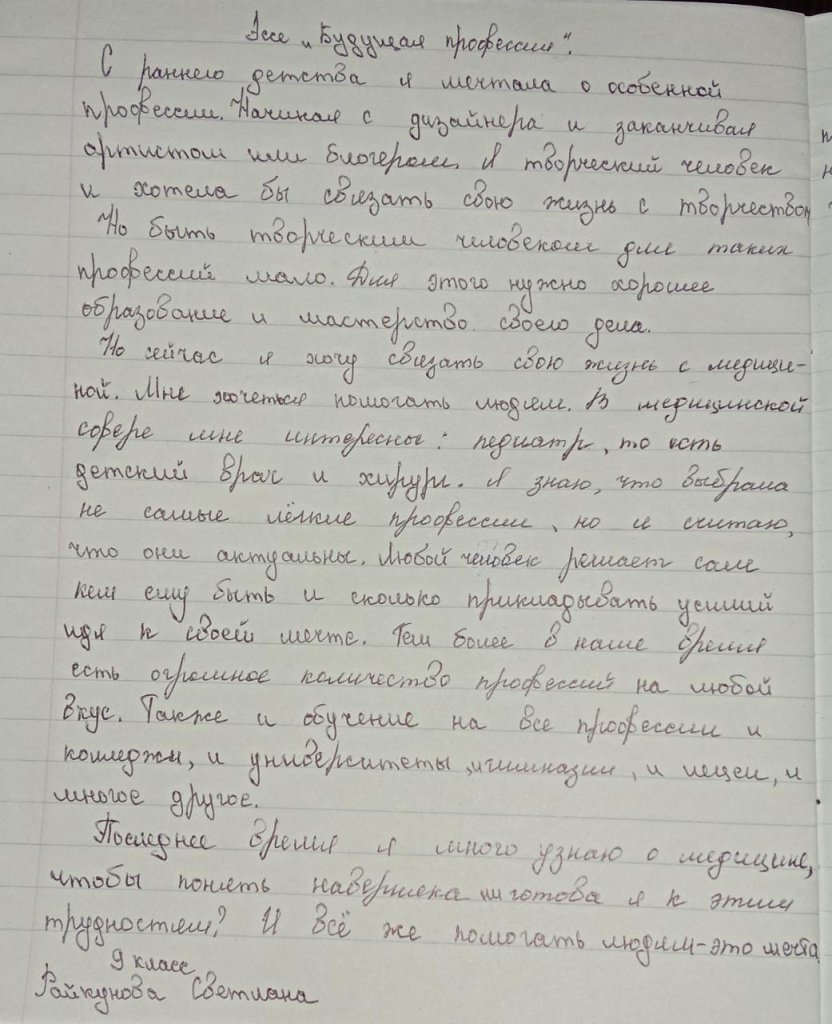 Эссе „Будущая профессия".
С раннего детства я мечтала о особенной
профессии. Начиная с дизайнера и заканчивая
артистом или блогером. Я творческий человек
и хотела бы связать свою жизнь с творчеством
Но быть творческим человеком для таких
профессий мало. Для этого нужно хорошее
образование и мастерство своего дела.
Но сейчас я хочу связать свою жизнь с медици-
ной. Мне хочеться помогать людям. В медицинской
сфере мне интересны: педиатр, то есть
детский врач и хирург. Я знаю, что выбрала
не самые лёгкие профессии, но я считаю,
что они актуальны. Любой человек решает сам
кем ему быть и сколько прикладывать усилий
идя к своей мечте. Тем более в наше время
есть огромное количество профессий на любой
вкус. Также и обучение на все профессии и
колледжи, и университеты, и гимназии, и лецеи, и
многое другое.
Последнее время я много узнаю о медицине,
чтобы понять наверняка готова я к этим
трудностям? И всё же помогать людям-это мечта
9 класс
Райкунова Светлана